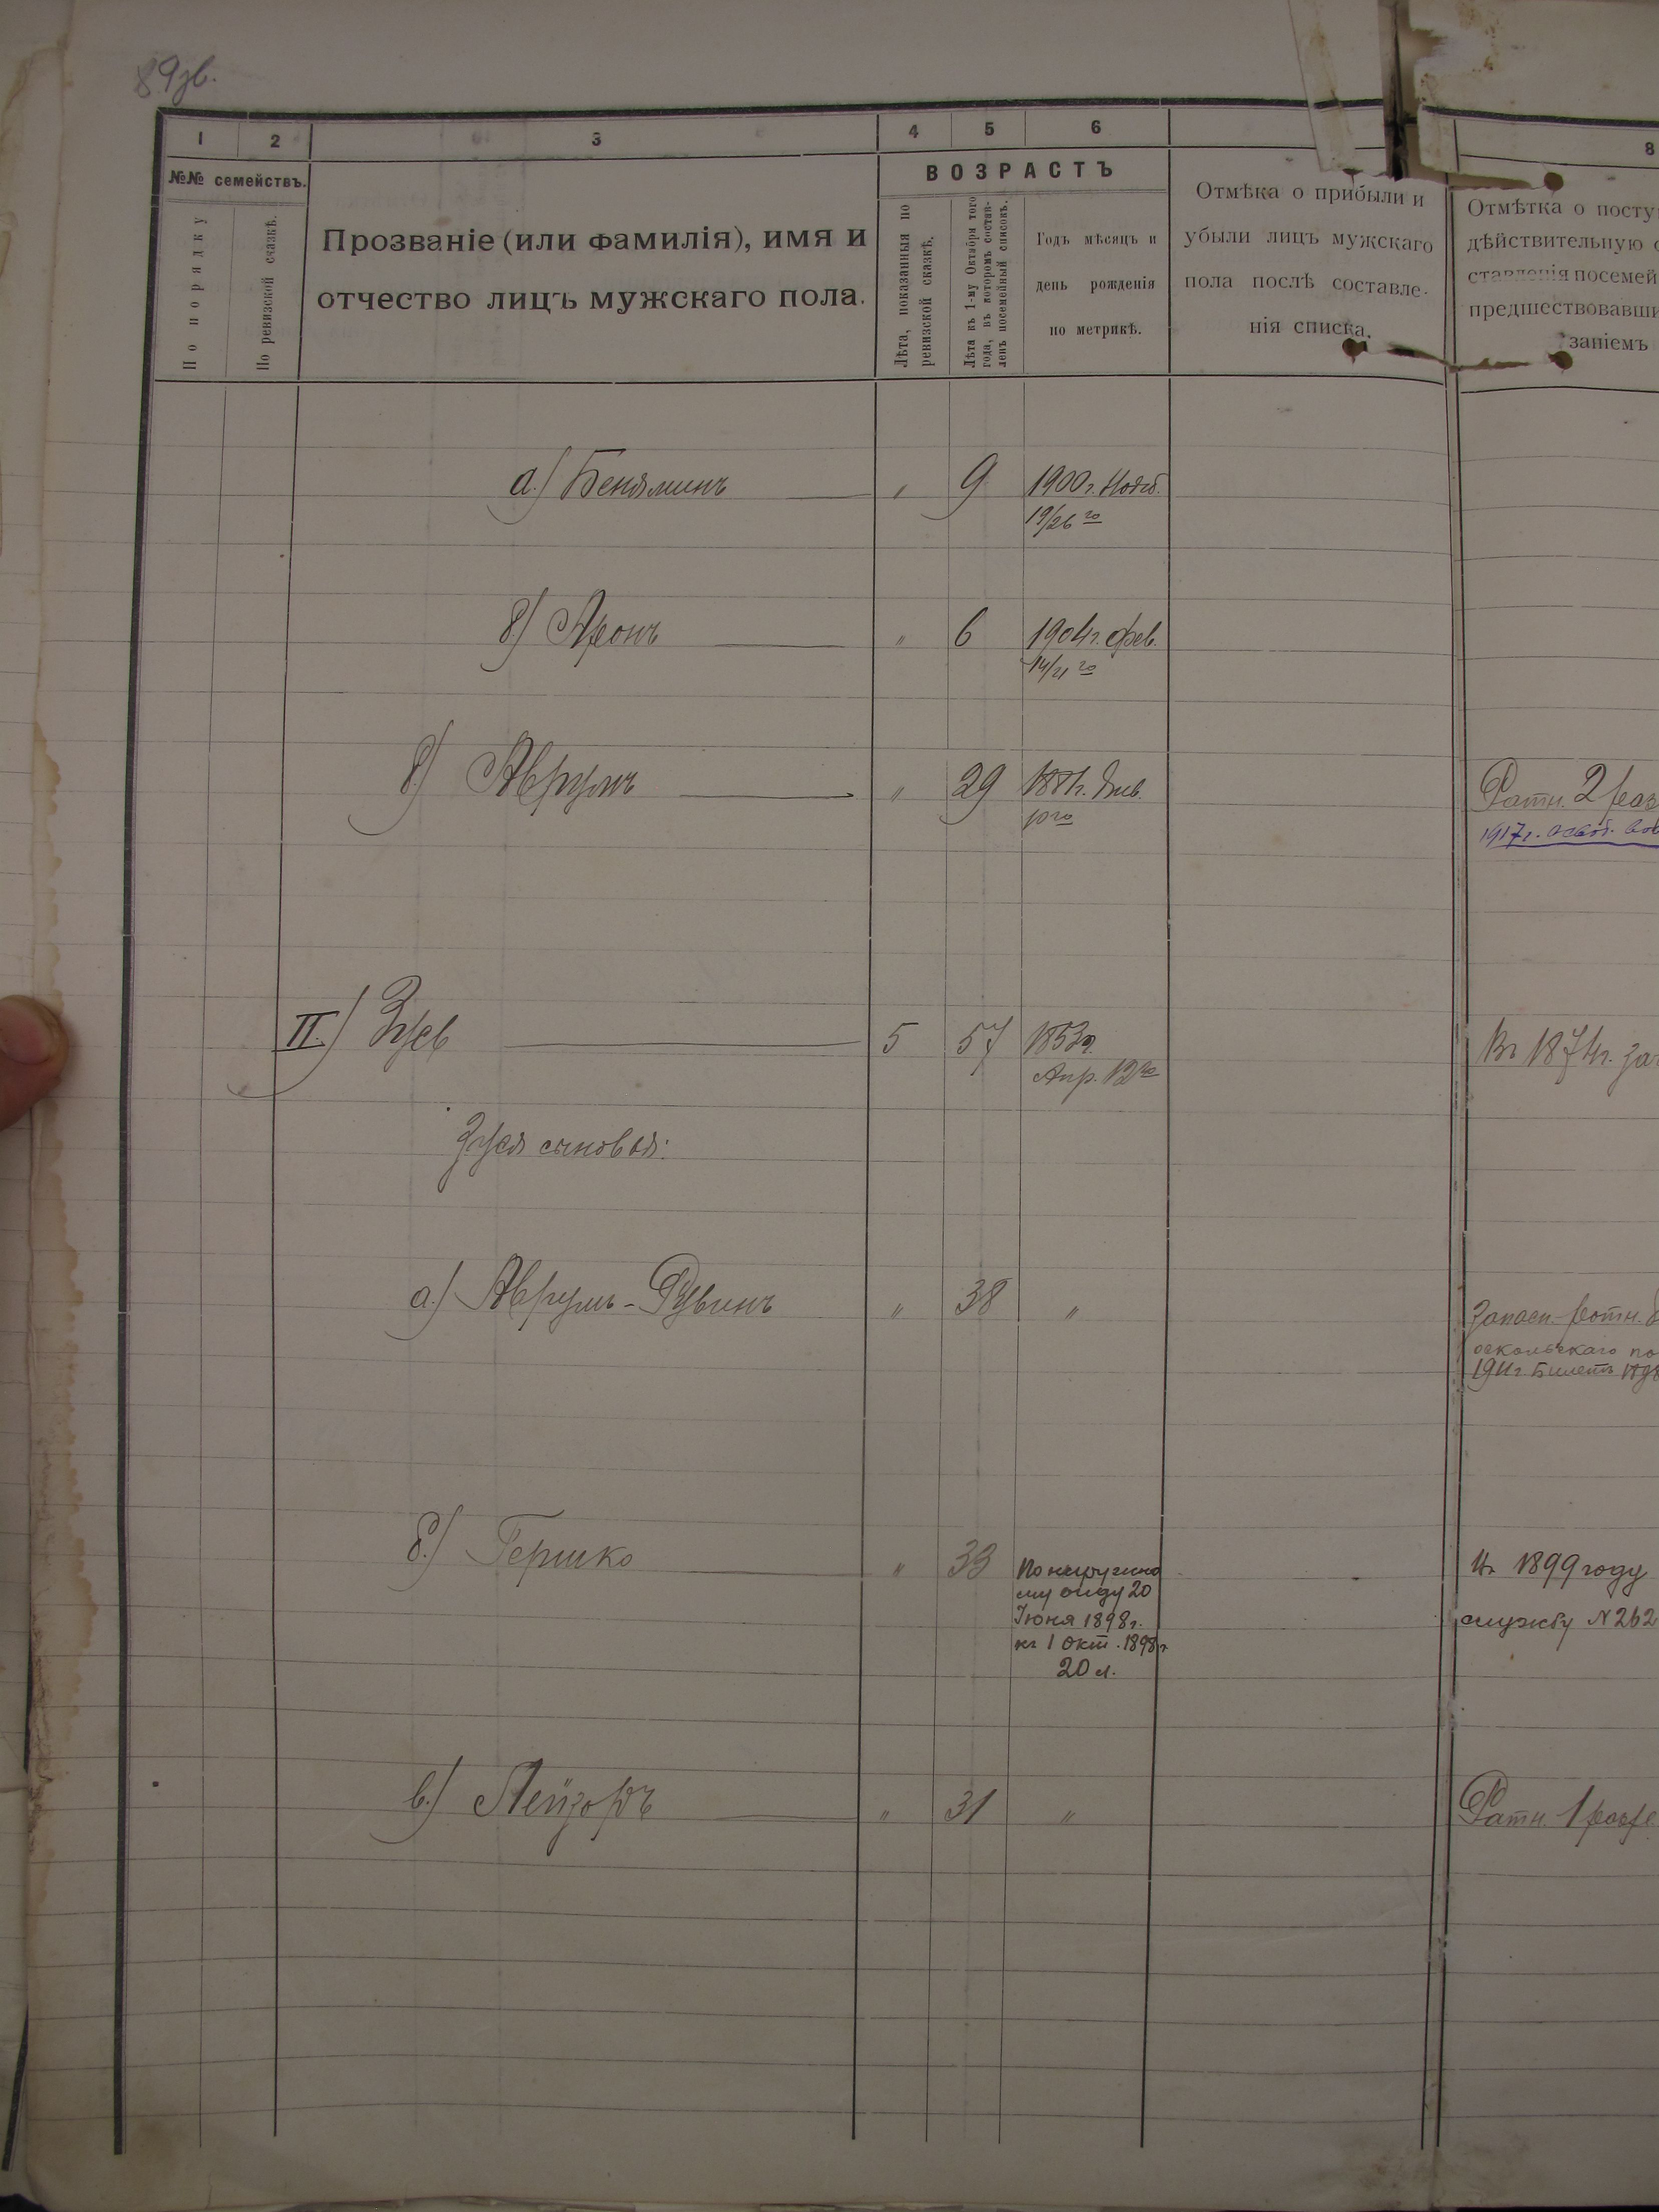 89зв.
1 2 3 4 5 6 8
№№ семействъ.
По порядку
По ревизской сказкѣ.
Прозваніе (или фамилія), имя и
отчество лицъ мужскаго пола.
ВОЗРАСТЪ
Лѣта, показанныя по
ревизской сказкѣ.
Лѣта къ 1-му Октября того
года, въ которомъ состав-
ленъ посемейный списокъ.
Годъ мѣсяцъ и
день рожденія
по метрикѣ.
Отмѣка о прибыли и
убыли лицъ мужскаго
пола послѣ составле-
нія списка.
Отмѣтка о посту
дѣйствительную с
ставленія посемей
предшествовавши
заніемъ
а.) Беняминъ " 9 1900 г. Нояб.
19/26 го
б) Аронъ " 6 1904 г. Фев.
14/21 го
б) Аврумъ " 29 1881 г. Янв.
10 го
Ратн. 2 раз
1917 г. освоб.
II.) Зусь 5 57 1853 г.
Апр. 12 го
Въ 1874 г. за
Зуся сыновья:
а.) Аврумъ-Рувинъ " 38 "
Запасн. ратн.
оскольскаго по
1911 г. Билетъ
б.) Гершко " 33 По наружно
му виду 20
Іюня 1898 г.
къ 1 Окт. 1898 г.
20 л.
1899 году
службу N 262
в.) Лейзоръ " 31 "
Ратн. 1 разр